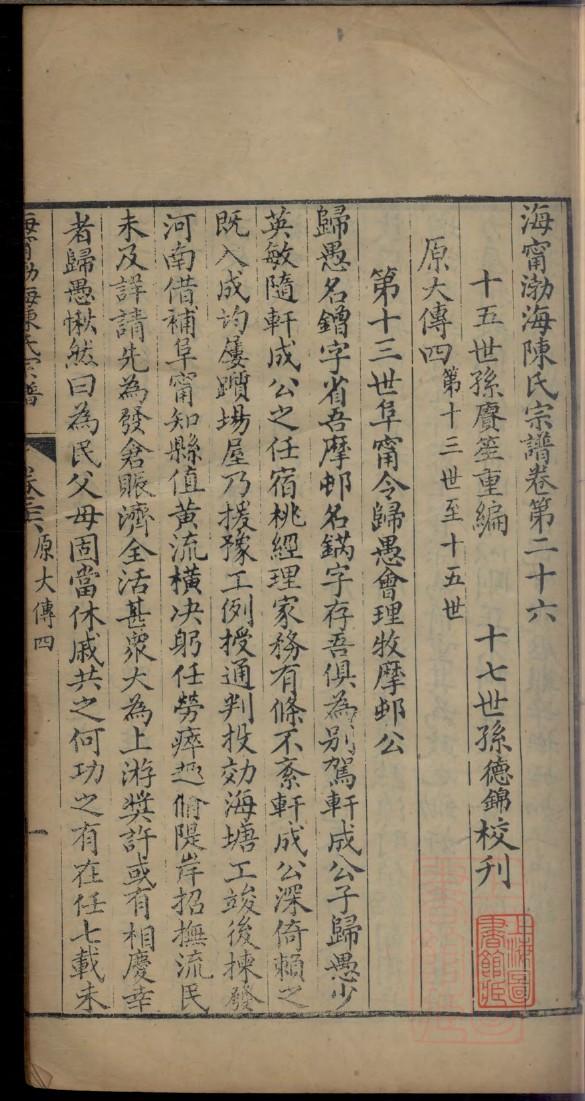 海甯渤海陳氏宗譜卷第二十六
十五世孫賡笙重編 十七世孫德錦校刊
原大傳四第十三世至十五世
第十三世阜甯令歸愚會理牧摩邨公
歸愚名鏳字省吾摩邨名鎬字存吾俱為別駕軒成公子歸愚少
英敏隨軒成公之任宿桃經理家務有條不紊軒成公深倚賴之
既入成均屢躓場屋乃援豫工例授通判投効海塘工竣後揀發
河南借補阜甯知縣值黃流橫决躬任勞瘁廵脩隄岸招撫流民
未及詳請先為發倉賑濟全活甚衆大為上游奬許或有相慶幸
者歸愚愀然曰為民父母固當休戚共之何功之有在任七載未
海甯渤海陳氏宗譜 卷二六 原大傳四 一
上海圖書館藏